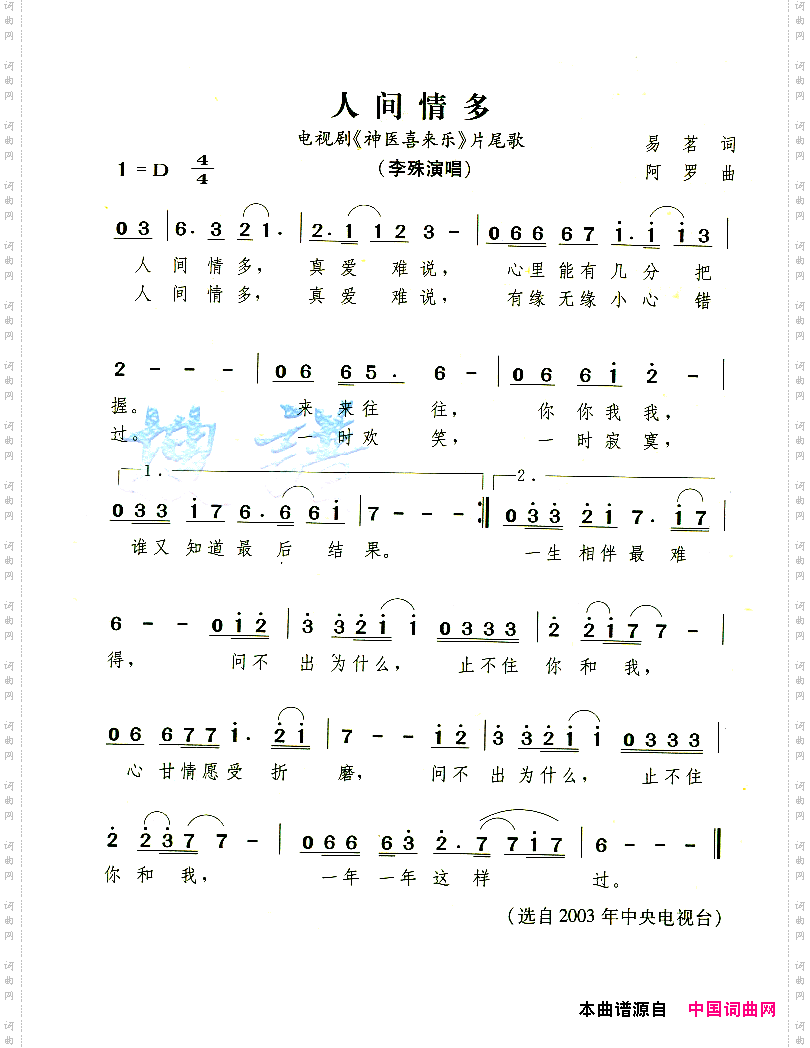 人间情多
电视剧《神医喜来乐》片尾歌
（李殊演唱）
易茗 词
阿罗 曲
1=D 4/4
0 3 | 6. 3 2 1. | 2. 1 1 2 3 - | 0 6 6 6 7 i. i i 3 |
人间情多， 真爱难说， 心里能有几分把
人间情多， 真爱难说， 有缘无缘小心错
2 - - - | 0 6 6 5. 6 - | 0 6 6 i 2 - |
握。 来来往往， 你你我我，
过。 一时欢笑， 一时寂寞，
1. 2.
0 3 3 i 7 6. 6 6 i | 7 - - - :| 0 3 3 2 i 7. i 7 |
谁又知道最后结果。 一生相伴最难
6 - - 0 i 2 | 3 3 2 i i 0 3 3 3 | 2 2 i 7 7 - |
得， 问不出为什么， 止不住你和我，
0 6 6 7 7 i. 2 i | 7 - - i 2 | 3 3 2 i i 0 3 3 3 |
心甘情愿受折磨， 问不出为什么， 止不住
2 2 3 7 7 - | 0 6 6 6 3 2. 7 7 i 7 | 6 - - ‖
你和我， 一年一年这样过。
（选自2003年中央电视台）
本曲谱源自 中国词曲网